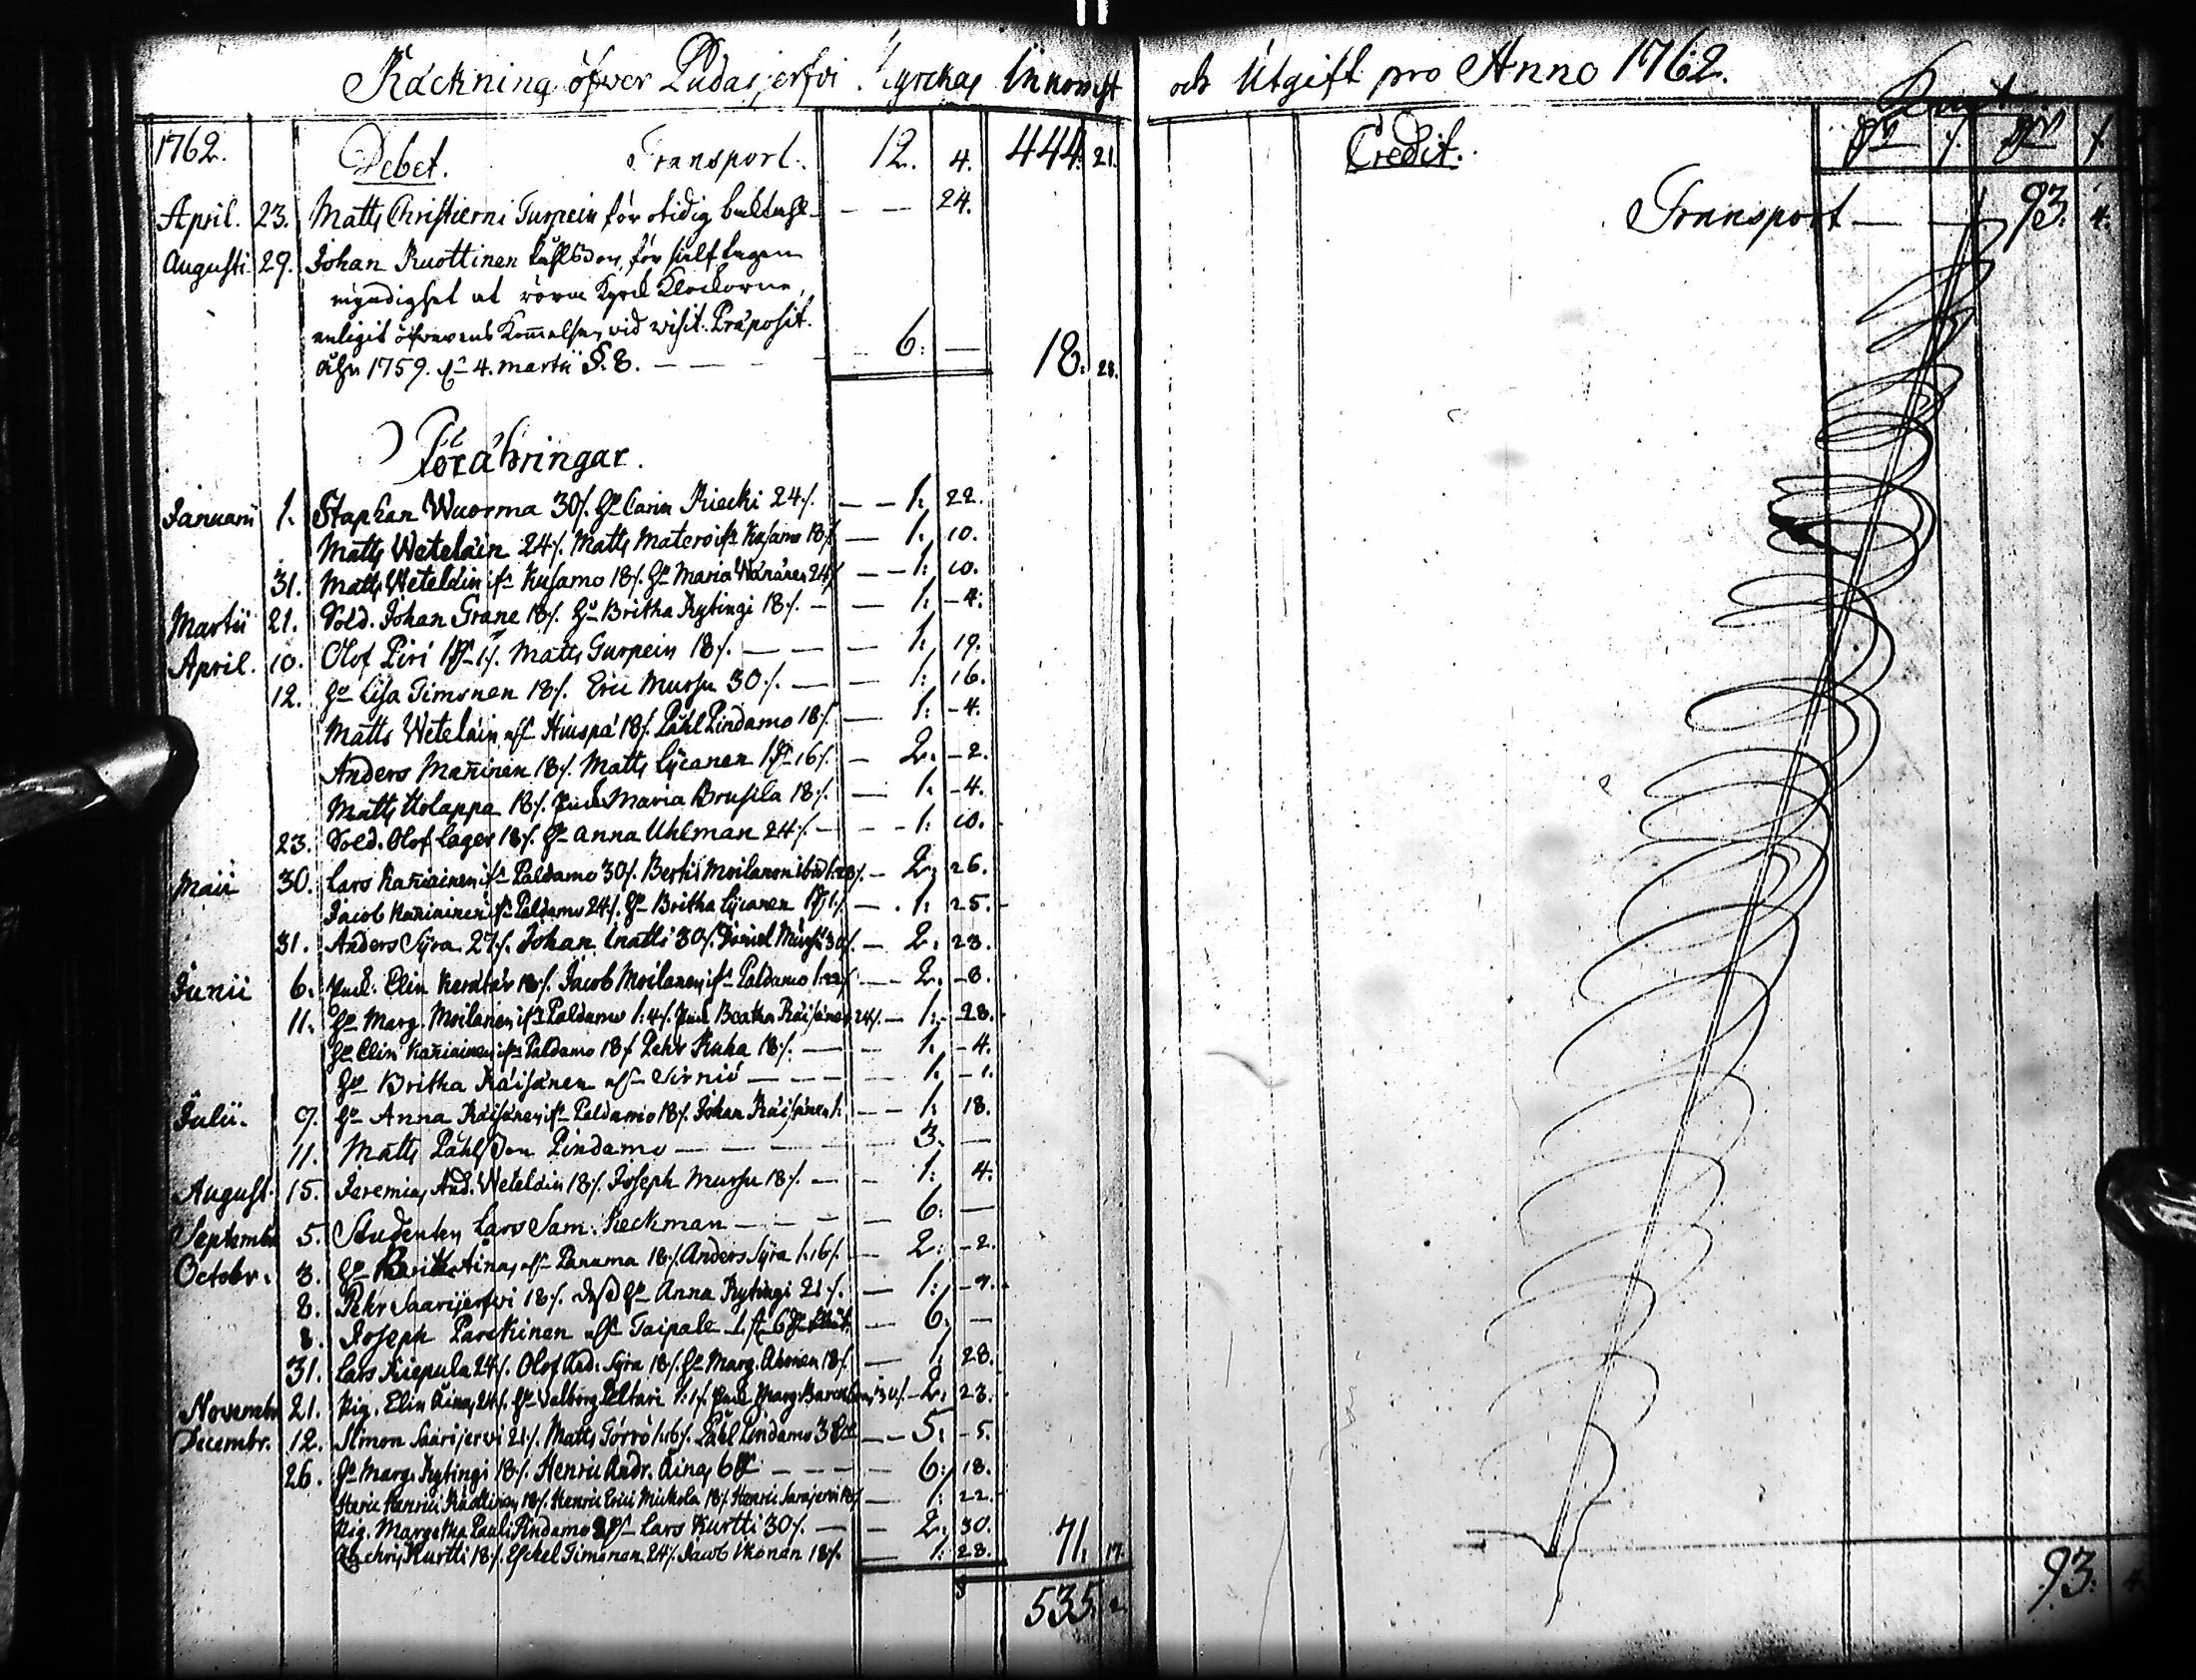 Räckning öfwer Pudasjerfvi Kyrckas Inkomst
1762. Debet. Transport. 12. 4. 444. 21.
April. 23. Matts Christierni Turpein för otidig 24.
Augusti. 29. Johan Ruottinen Påhlson, för sielftagen
myndighet at röra Kyrck Klockorne,
enligit öfwerens Kommelsen vid visit. Præposit.
åhr 1759. d. 4. Martii §. 8. 6: — 18. 28.
Förähringar.
Januarii 1. Staphan Wuorma 30/. Hu Carin Riecki 24/. 1: 22.
Matts Weteläin 24/. Matts Matero ifr Kusamo 18/. 1. 10.
31. Matts Weteläin ifr Kusamo 18/. Hu Maria Wänänen 24/. 1: 10.
Martii 21. Sold. Johan Grane 18/. Hu Britha Rytingi 18/. 1. 4:
April. 10. Olof Piri 1/. Matts Turpein 18/. 1: 19.
12. Hu Lisa Timonen 18/. Eric Mursu 30/. 1: 16.
Matts Weteläin Hiuspä 18/. Påhl Pindamo 18/. 1: 4.
Anders Mañinen 18/. Matts Lycanen 16/. 2. 2.
Matts Holappa 18/. Maria Brusila 18/. 1. 4.
23. Sold. Olof Lager 18/. Hu Anna Uhlman 24/. 1: 10.
Maii 30. Lars Kañiainen ifr Paldamo 30/. Bertil Moilanen 2. 26.
Jacob Kañiainen ifr Paldamo 24/. Hu Britha Lycanen 1: 25.
31. Anders Syra 27/. Johan Inatti 30/. Daniel Mursu 30/. 2. 23.
Junii 6. Elin Kerätär 18/. Jacob Moilanen ifr Paldamo 1:22/. 2. 8.
11. Hu Marg. Moilanen ifr Paldamo 1:4/. Beatha Räisänen 24/. 1: 28.
Hu Elin Kañiainen ifr Paldamo 18/. Pehr Kuha 18/. 1. 4.
Hu Britha Räisänen Sirniö 1. 1.
Julii. 9. Hu Anna Räisänen ifr Paldamo 18/. Johan Räisänen 1. 1. 18.
11. Matts Påhlson Pindamo 3. —
August. 15. Jeremias And. Weteläin 18/. Joseph Mursu 18/. 1: 4.
Septembr. 5. Studenten Lars Sam. 6: —
Octobr. 3. Hu Ainas Panuma 18/. Anders Syra 1:16/. 2: 2.
8. Pehr Saarijerfvi 18/. Hu Anna Rytingi 21/. 1:
8. Joseph Parckinen Taipale 6. —
31. Lars Riepula 24/. Olof And. Syra 18/. Hu Marg. Ahonen 18/. 1. 28.
Novembr. 21. Pig. Elin Ainas 24/. Hu Valborg Peltari 1:1/. Marg. 30/. 2. 23.
Decembr. 12. Simon Saarijervi 21/. Matts Törrö 1:16/. Påhl Pindamo 3 5: 5.
26. Hu Marg. Rytingi 18/. Henric Andr. Ainas 6 6: 18.
Henric Henrici 18/. Henric Erici Mickola 18/. Henric Sarajervi 18/. 1: 22.
Pig. Margetha Pauli Pindamo Lars Kurtti 30/. 2. 30.
Kurtti 18/. Eskel Timonen 24/. Jacob Ikonen 18/. 1: 28. 71. 17.
535. 2.
och Utgift pro Anno 1762.
Credit.
Transport — 93. 4.
93. 4.